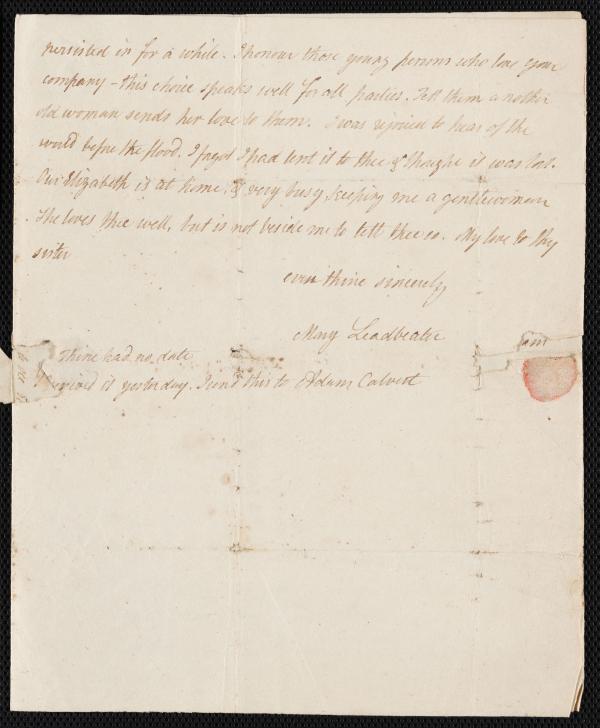 persisted in for a while. I honour those young persons who love your
company - this choice speaks well for all parties. Tell them another
old woman sends her love to them. I was rejoiced to hear of the
world before the flood. I forgot I had lent it to thee & thought it was lost.
Our Elizabeth is at home, & very busy, keeping me a gentlewoman
She loves thee well, but is not beside me to tell thee so. My love to thy
sister
ever thine sincerely
Mary Leadbeater
Thine had no date
received it yesterday. I send this to Adam Calvert